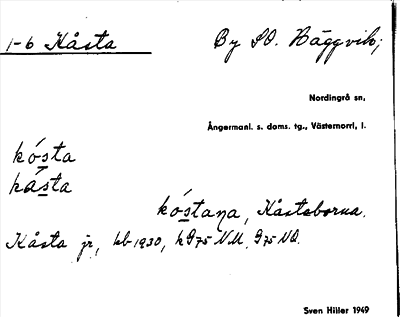 1-6 Kåsta By SO. Häggvik;
Nordingrå sn,
Ångermanl. s. doms. tg., Västernorrl, l.
kósta
kásta
kóstana, Kåstaborna.
Kåsta jr, kb 1930, k 975 NM, 975 NO.
Sven Hiller 1949